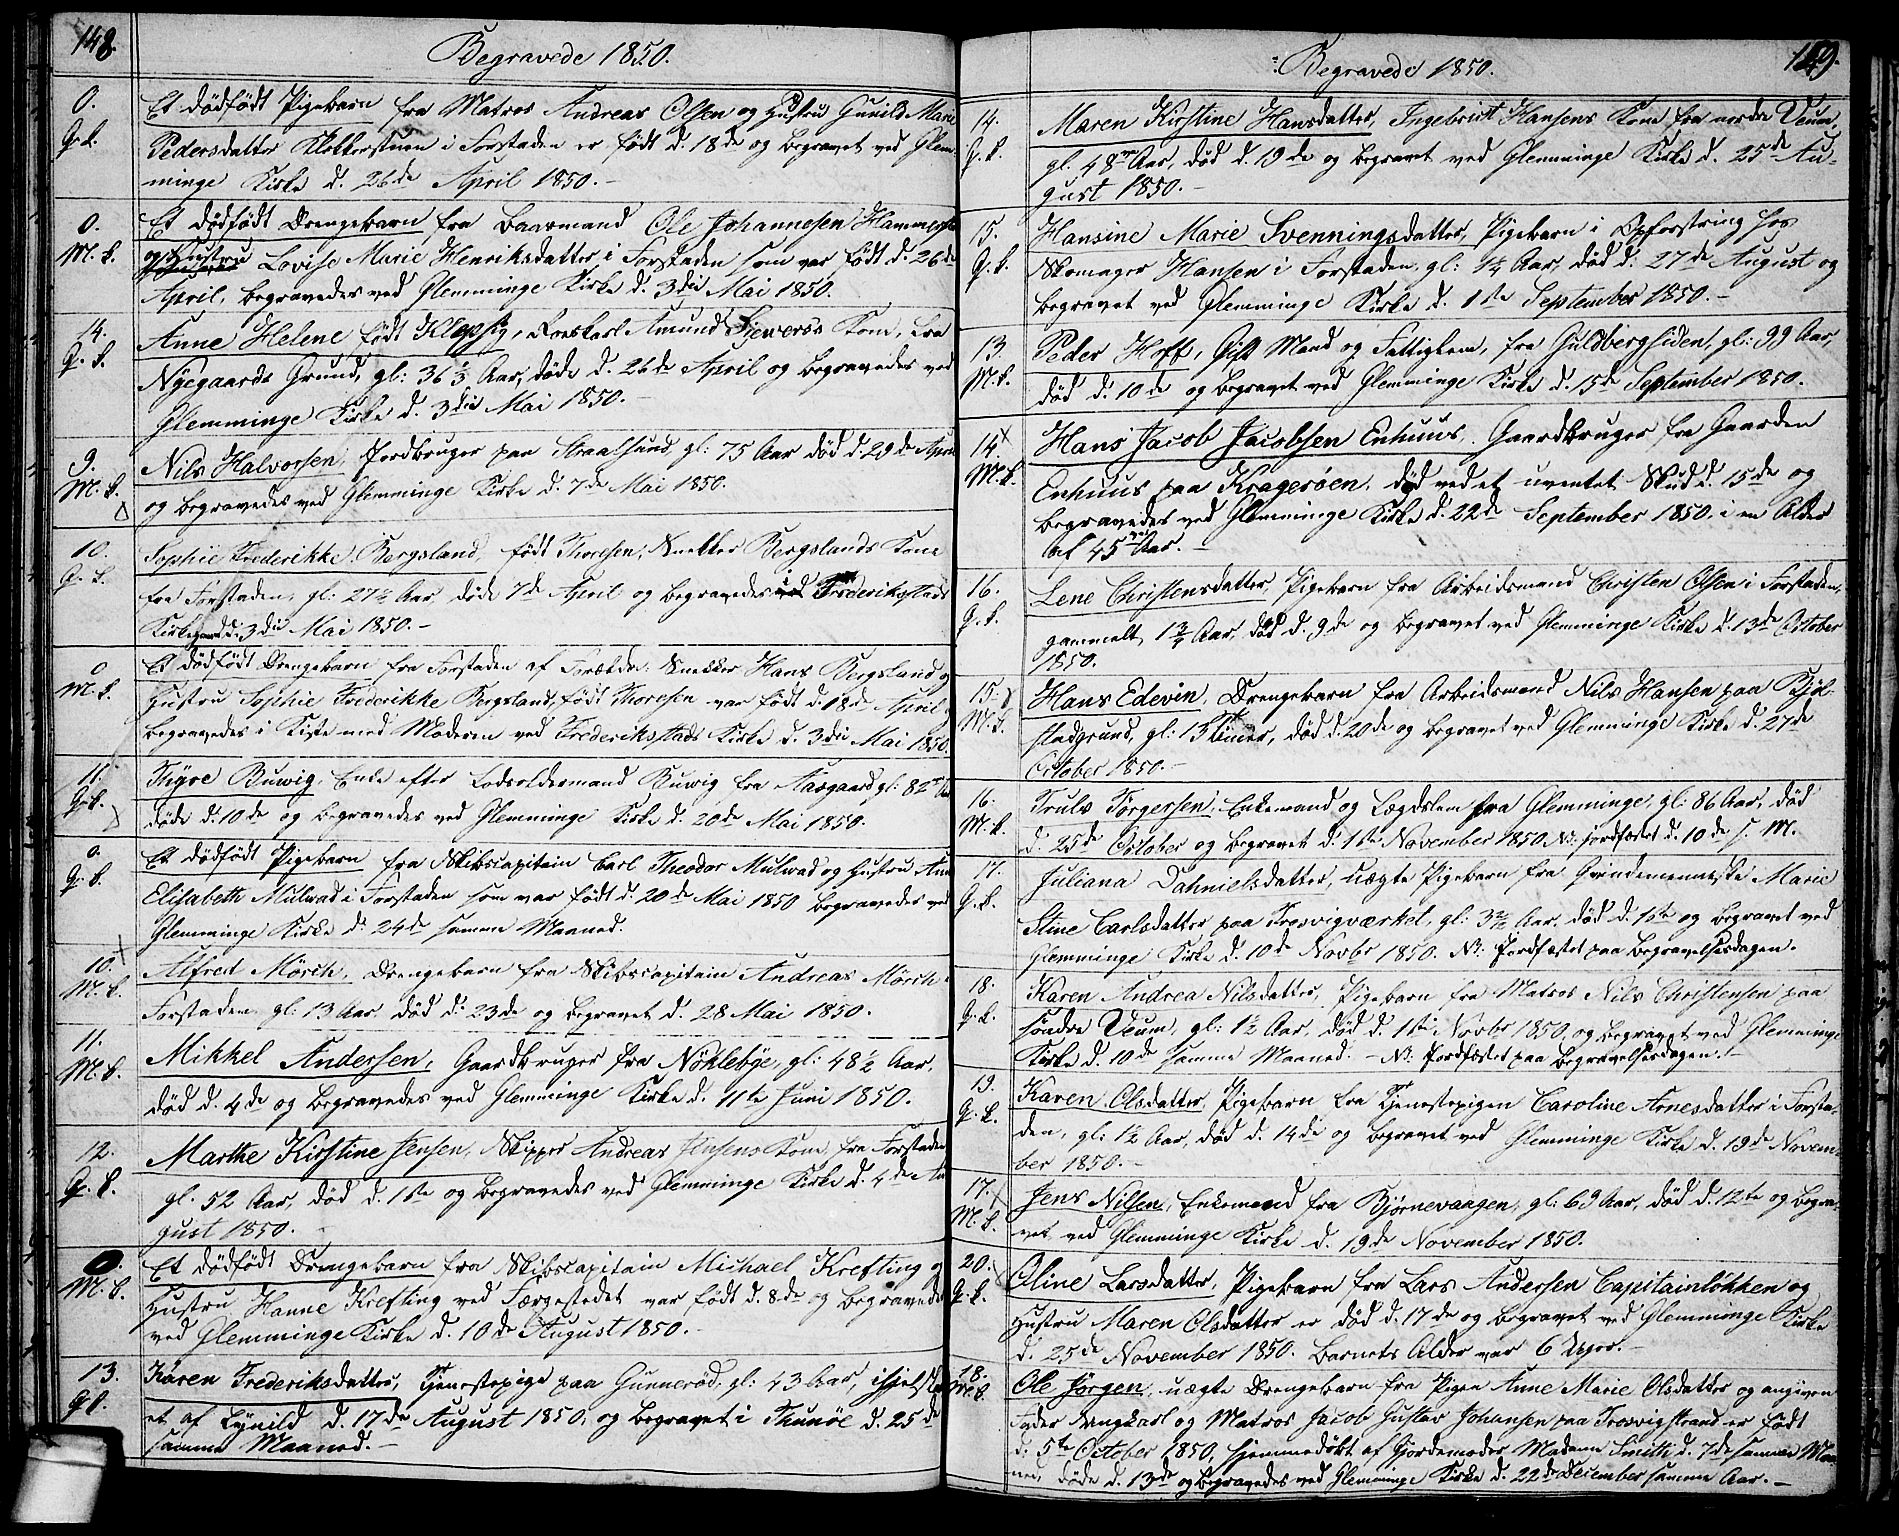 148.
Begravede 1850.
0.
Q.k.
Et dødfødt Pigebarn fra Matros Andreas Olsen og Hustru Gunild Marie
Pedersdatter Klokkerstuen i Forstaden er født d. 18de og begravet ved Glem-
minge Kirke d. 26de April 1850.-
0.
M.k.
Et dødfødt Drengebarn fra Baarmand Ole Johannesen Hammers
og Hustru Lovise Marie Henriksdatter i Forstaden som var født d. 26de
April, begravedes ved Glemminge Kirke d. 3die Mai 1850.
14.
Q.k.
Anne Helene født Klepsig, Roerkarl Amund Siewerss Kone, fra
Nyegaards Grund, gl: 36 1/3 Aar, døde d. 26de April og begravedes ved
Glemminge Kirke d. 3die Mai 1850.-
9.
M.k.
Nils Halvorsen, Jordbruger paa Straalsund, gl: 75 Aar død d. 29de April
og begravedes ved Glemminge Kirke d. 7de Mai 1850.
10.
Q.k.
Sophie Frederikke Bergsland født Thoresen, Snekker Bergslands Kone
fra Forstaden, gl: 27½ Aar døde 7de April og begravedes i Frederikstads
Kirkegaard d. 3die Mai 1850.-
0
M.k.
Et dødfødt Drengebarn fra Forstaden af Forældre: Snekker Hans Bergsland og
Hustru Sophie Frederikke Bergsland, født Thoresen var født d. 18de April
begravedes i Kiste med Moderen ved Frederikstads Kirke d. 3die Mai 1850.
11.
Q.k.
Thyre Buwig, Enke efter Lodsoldermand Buwig fra Aasgaard gl: 82 Aar
døde d. 10de og begravedes ved Glemminge Kirke d. 20de Mai 1850.
0.
Q.k.
Et dødfødt Pigebarn fra Skibscapitain Carl Theodor Mulwad og Hustru Ann
Elisabeth Mulwad i Forstaden som var født d. 20de Mai 1850 begravedes ved
Glemminge Kirke d: 24de samme Maaned.
10.
M.k.
Alfred Mörch, Drengebarn fra Skibscapitain Andreas Mörch
Forstaden, gl: 13 Aar død d: 23de og begravet d. 28 Mai 1850.
11.
M.k.
Mikkel Andersen, Gaardbruger fra Nøkleböe, gl: 48½ Aar,
død d. 4de og begravedes ved Glemminge Kirke d. 11te Juni 1850.
12.
Q.k.
Marthe Kirstine Jensen, Skipper Andreas Jensens Kone, fra Forstaden
gl. 52 Aar, død d. 1ste og begravedes ved Glemminge Kirke d. 4de Au
gust 1850.
0.
M.k.
Et dødfødt Drengebarn fra Skibscapitain Michael Krefting og
Hustru Hanne Krefting ved Færgestedet var født d. 8de og begravedes
ved Glemminge Kirke d. 10de August 1850.
13.
Q.k.
Karen Frederiksdatter, Tjenestepige paa Gunnerød, gl: 43 Aar, ihjelslag
et af Lynild d. 17de August 1850, og begravet i Thunöe d. 25de
samme Maaned.-
149.
Begravede 1850.
14.
Q.k.
Maren Kirstine Hansdatter, Ingebrict Hansens Kone fra nordre Veum,
gl. 48 Aar, død d. 19de og begravet ved Glemminge Kirke d. 25de Au-
gust 1850.-
15.
Q.k.
Hansine Marie Svenningsdatter, Pigebarn i Opfostring hos
Skomager Hansen i Forstaden, gl: 1¼ Aar, død d: 27de August og
begravet ved Glemminge Kirke d. 1ste September 1850.-
13.
M.k.
Peder Hoff, Gift Mand og Fattiglem, fra Guldbergsiden, gl: 99 Aar,
død d. 10de og begravet ved Glemminge Kirke d. 15de September 1850.
14
M.k.
Hans Jacob Jacobsen Enhuus, Gaardbruger fra Gaarden
Enhuus paa Kragerøen, død ved et uventet Skud d. 15de og
begravedes ved Glemminge Kirke d. 22de September 1850, i en Alder
af 45 Aar.-
16.
Q.k.
Lene Christensdatter, Pigebarn fra Arbeidsmand Christen Olsen i Forstaden,
gammelt 1¾ Aar, død d. 9de og begravet ved Glemminge Kirke d. 13de October
1850.
15.
M.k.
Hans Edevin, Drengebarn fra Arbeidsmand Nils Hansen paa Bjøl-
stadgrund, gl: 13 Timer, død d. 20de og begravet ved Glemminge Kirke d. 27de
October 1850.-
16.
M.k.
Truls Torgersen, Enkemand og Lægdslem fra Glemminge, gl: 86 Aar, død
d. 25de October og begravet d. 1ste November 1850 NB. jordfæstet d. 10de s. M.
17.
Q.k.
Juliana Dahnielsdatter, uægte Pigebarn fra Qvindemenneske Marie
Stine Carlsdatter paa Trosvigværket, gl: 3½ Aar, død d. 1ste og begravet ved
Glemminge Kirke d. 10de Novbr 1850. NB: Jordfæstet paa Begravelsesdagen.
18.
Q.k.
Karen Andrea Nilsdatter, Pigebarn fra Matros Nils Christensen paa
søndre Veum, gl: 1½ Aar, død d. 1ste Novbr 1850, og begravet ved Glemminge
Kirke d. 10de samme Maaned. - NB: Jordfæstet paa Begravelsesdagen.-
19.
Q.k.
Karen Olsdatter, Pigebarn fra Tjenestepigen Caroline Arnesdatter i Forsta-
den, gl: 1½ Aar, død d. 14de og begravet ved Glemminge Kirke d. 19de Novem-
ber 1850.-
17.
M.k.
Jens Nilsen, Enkemand fra Bjørnevaagen, gl: 69 Aar, død d. 12te og begra-
vet ved Glemminge Kirke d. 19de November 1850.
20.
Q.k.
Oline Larsdatter, Pigebarn fra Lars Andersen Capitainløkken og
Hustru Maren Olsdatter er død d. 17de og begravet ved Glemminge Kirke
d. 25de November 1850. Barnets Alder var 6 Uger.-
18.
M.k.
Ole Jörgen, uægte Drengebarn fra Pigen Anne Marie Olsdatter og angiven
Fader Ungkarl og Matros Jacob Gustav Johansen paa Trosvigstrand er født
d. 5te October 1850, hjemmedøbt af Gjordemoder Madam Smith d. 7de samme Maa-
ned, døde d. 13de og begravedes ved Glemminge Kirke d. 22de December samme Aar.-